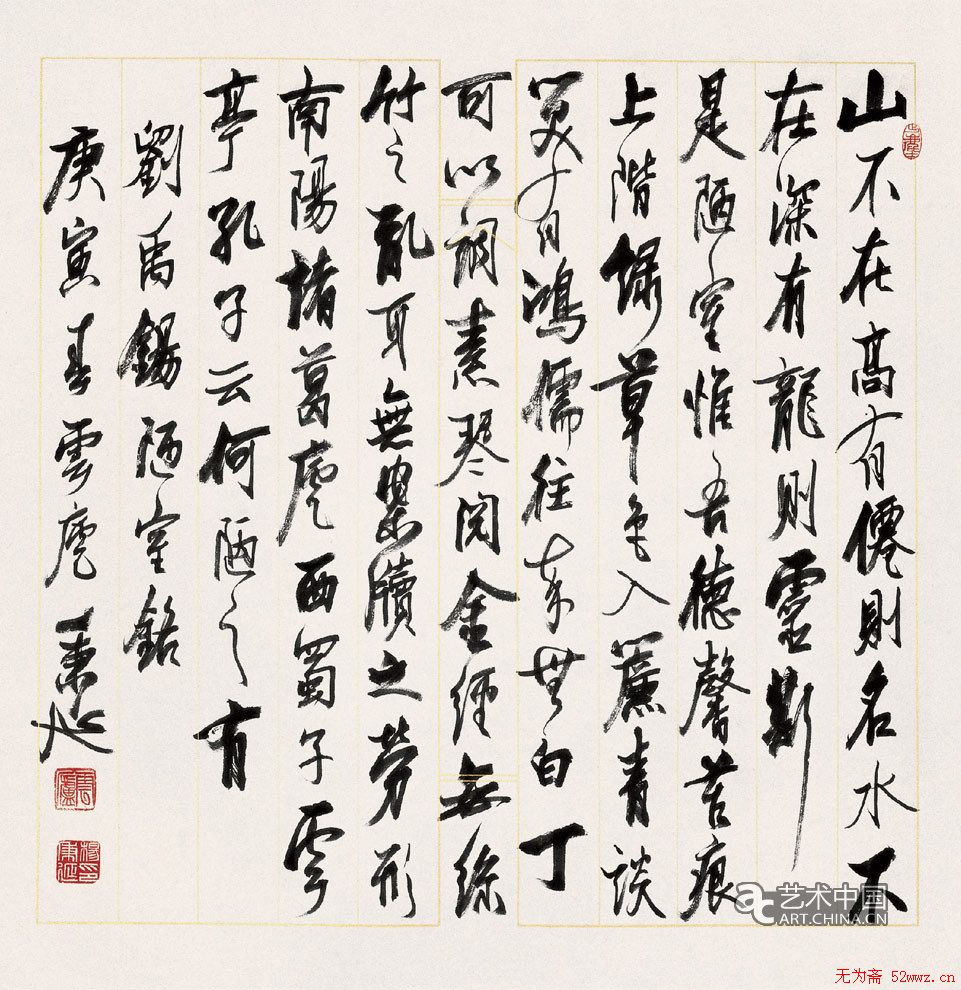 山不在高有僊則名水不
在深有龍則靈斯
是陋室惟吾德馨苔痕
上階綠草色入簾青談
笑有鴻儒往来無白丁
可以調素琴閱金經無絲
竹之亂耳無案牘之勞形
南陽諸葛廬西蜀子雲
亭孔子云何陋之有
劉禹錫陋室銘
庚寅春雲廬秉延
雲廬
艺术中国
ART.CHINA.CN
无为斋 52wwz.cn